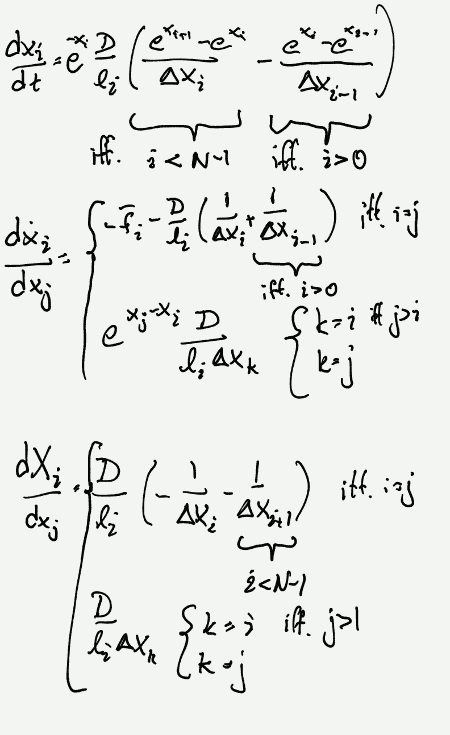 dx_i/dt = e^{-x_i} D/l_i ( (e^{x_{i+1}} - e^{x_i})/Δx_i - (e^{x_i} - e^{x_{i-1}})/Δx_{i-1} )
iff. i < N-1 iff. i>0
dẋ_i/dx_j = { -f̄_i - D/l_i ( 1/Δx_i + 1/Δx_{i-1} ) iff. i=j
iff. i>0
e^{x_j - x_i} D/(l_i Δx_k) { k=i iff j>i
k=j
dX_i/dx_j = { D/l_i ( - 1/ΔX_i - 1/ΔX_{i+1} ) iff. i=j
i<N-1
D/(l_i ΔX_k) { k=i iff. j>1
k=j